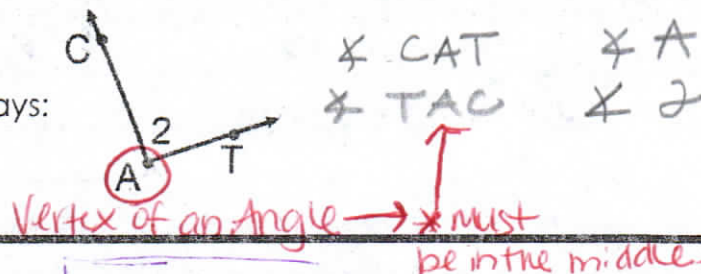 C
∡ CAT ∡ A
ays: 2 ∡ TAC ∡ 2
A T
Vertex of an Angle → * must
be in the middle.